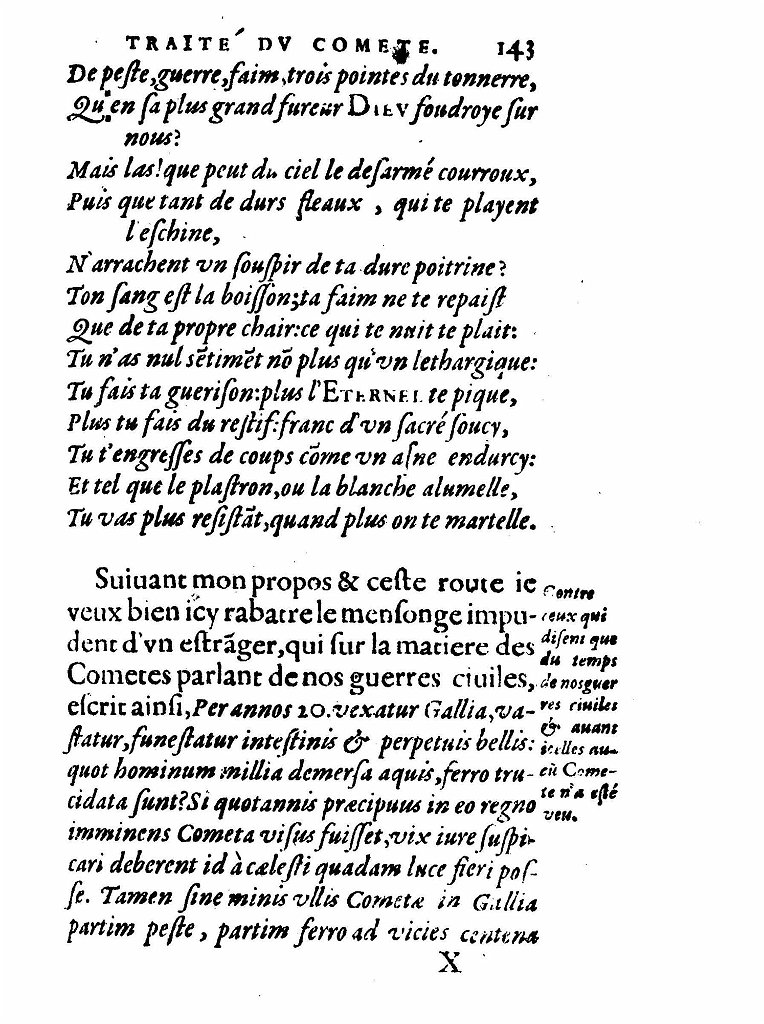 TRAITÉ DV COMETE. 143
De peſte, guerre, faim, trois pointes du tonnerre,
Qu'en ſa plus grand fureur DIEV foudroye ſur
nous?
Mais las! que peut du ciel le deſarmé courroux,
Puis que tant de durs fleaux, qui te playent
l'eſchine,
N'arrachent vn ſouſpir de ta dure poitrine?
Ton ſang eſt la boiſſon; ta faim ne te repaiſt
Que de ta propre chair: ce qui te nuit te plait:
Tu n'as nul sẽtimẽt nõ plus qu'vn lethargique:
Tu fais ta gueriſon: plus l'ETERNEL te pique,
Plus tu fais du reſtif: franc d'vn ſacré ſoucy,
Tu t'engreſſes de coups cõme vn aſne endurcy:
Et tel que le plaſtron, ou la blanche alumelle,
Tu vas plus reſiſtãt, quand plus on te martelle.
Suiuant mon propos & ceſte route ie
veux bien icy rabatre le menſonge impu-
dent d'vn eſtrãger, qui ſur la matiere des
Cometes parlant de nos guerres ciuiles,
eſcrit ainſi, Per annos 20. vexatur Gallia, va-
ſtatur, funeſtatur inteſtinis & perpetuis bellis:
quot hominum millia demerſa aquis, ferro tru-
cidata ſunt? Si quotannis præcipuus in eo regno
imminens Cometa viſus fuiſſet, vix iure ſuſpi-
cari deberent id à cæleſti quadam luce fieri poſ-
ſe. Tamen ſine minis vllis Cometæ in Gallia
partim peſte, partim ferro ad vicies centena
Contre
ceux qui
diſent que
du temps
de nos guer
res ciuiles
& auant
icelles au-
cũ Come-
te n'a eſté
veu.
X